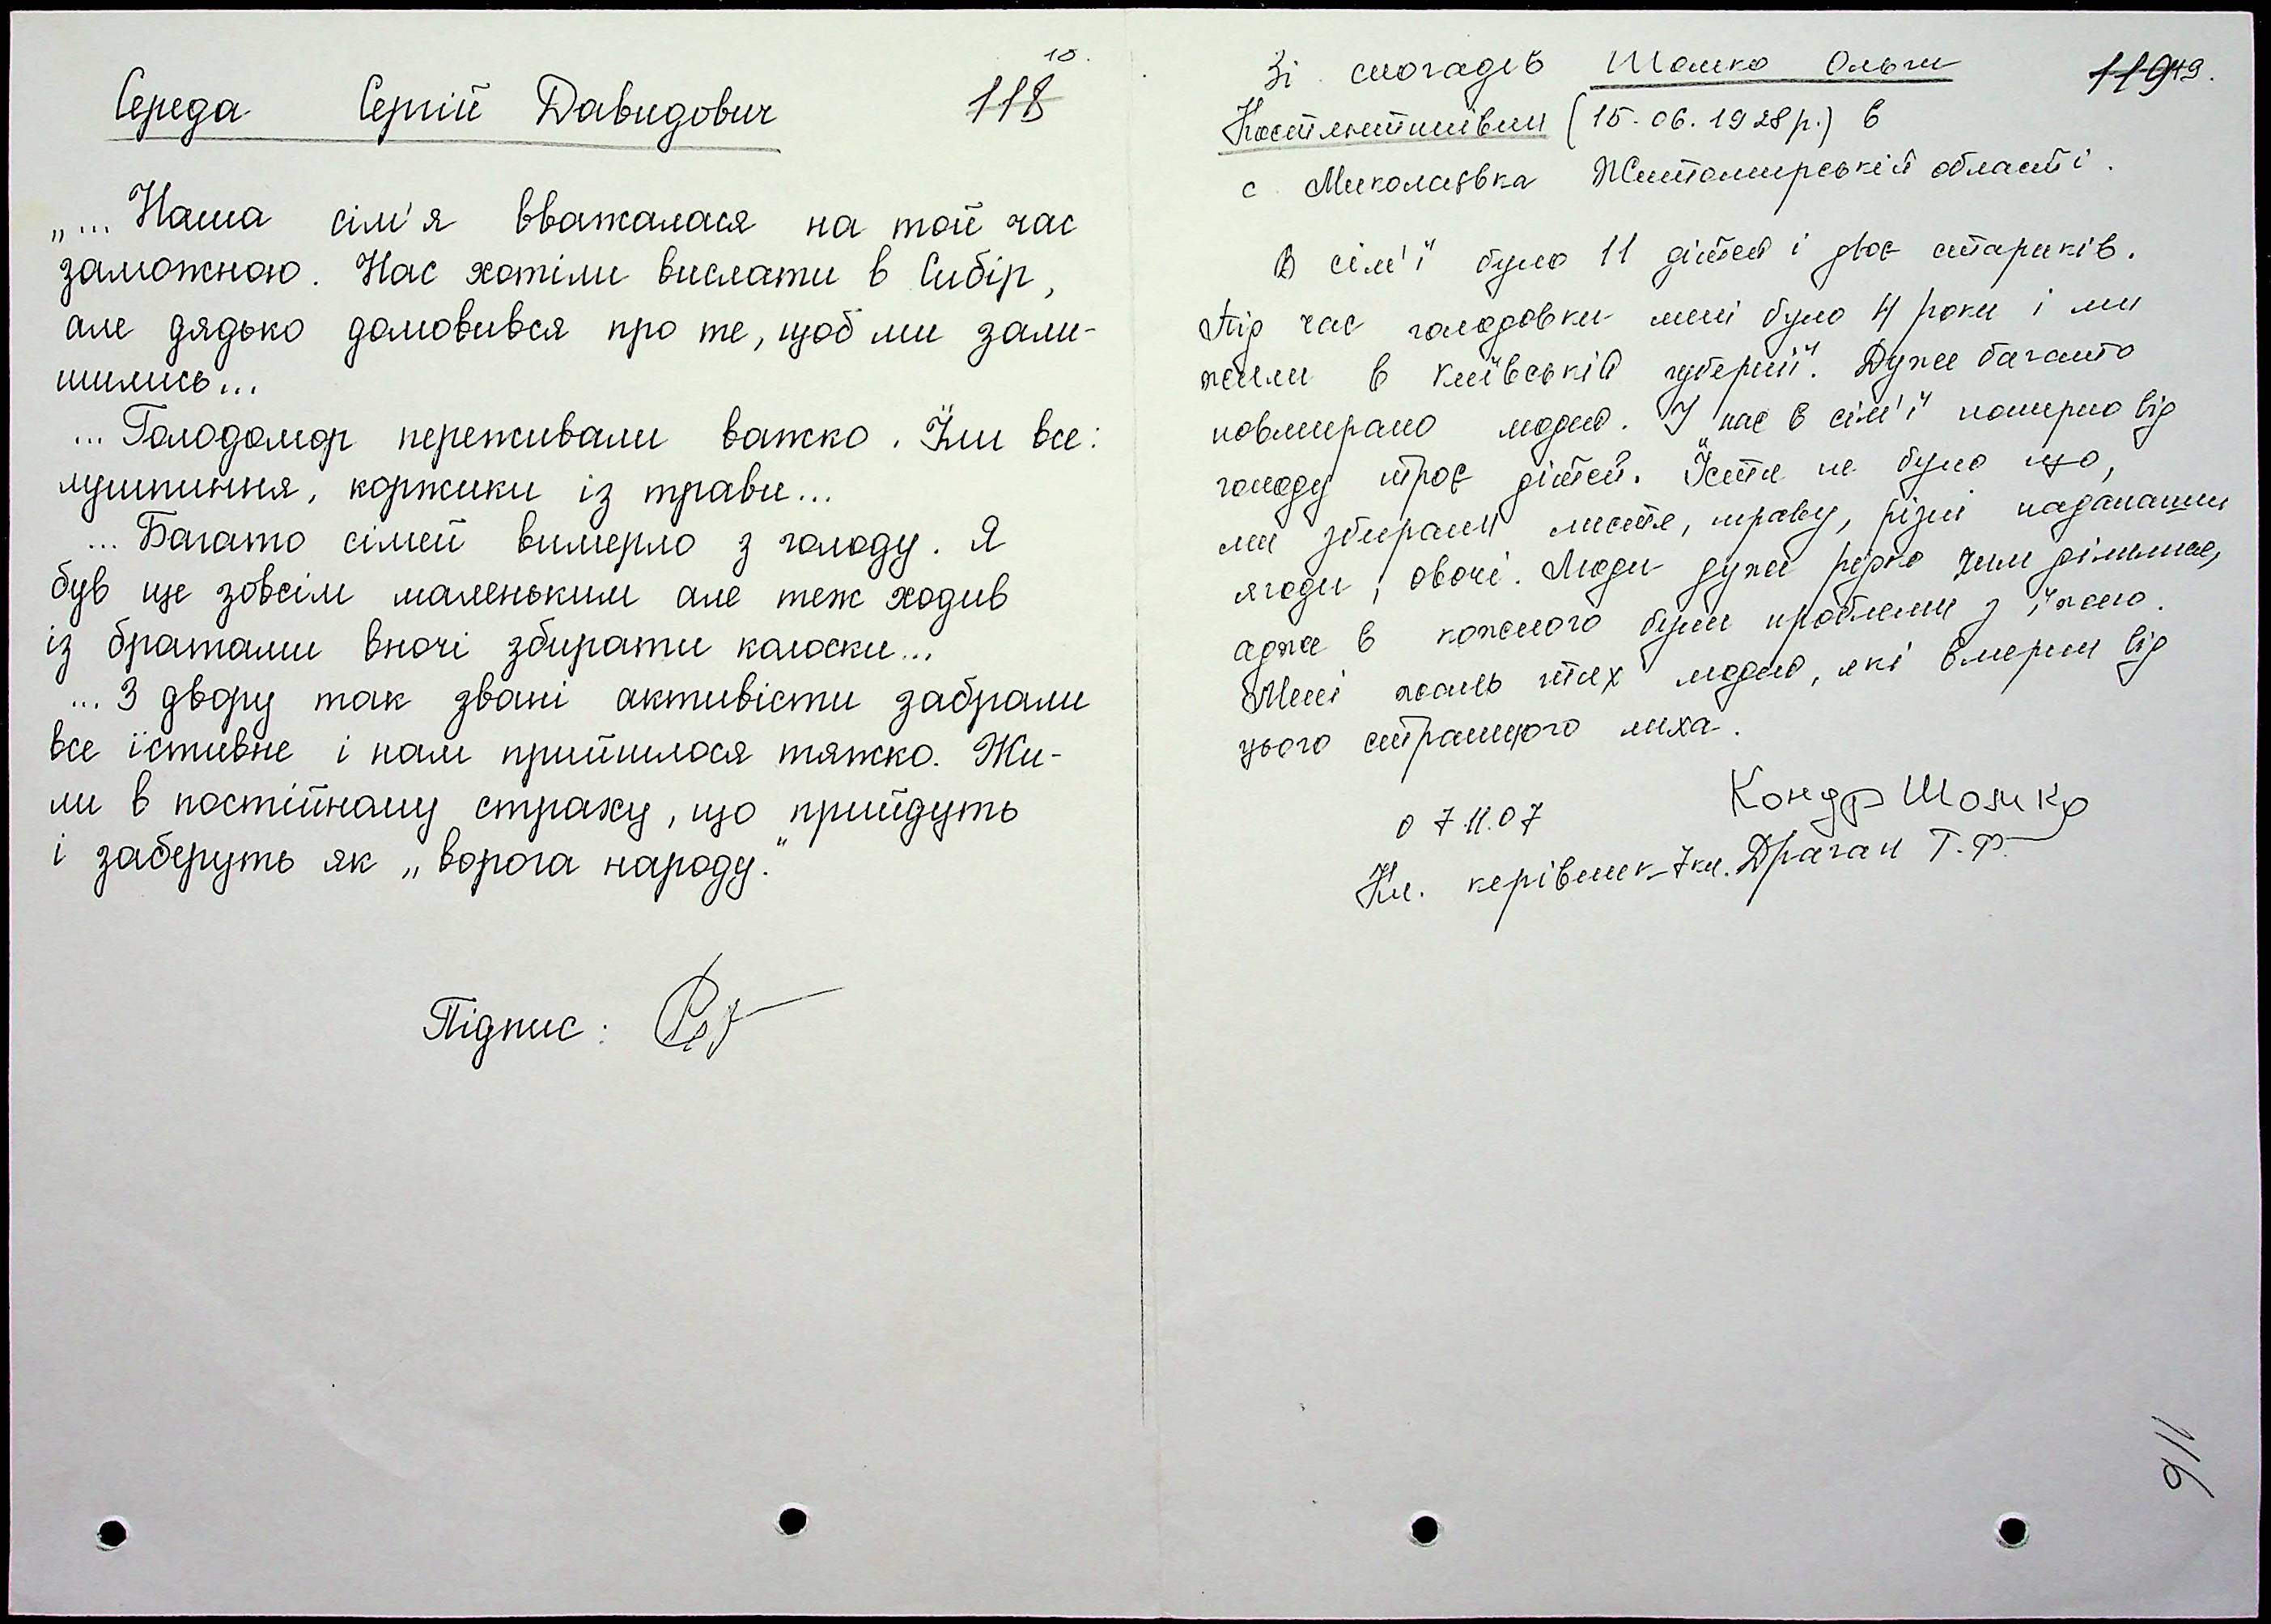 18.
118
Середа Сергій Давидович
„... Наша сім'я вважалася на той час
заможною. Нас хотіли вислати в Сибір,
але дядько домовився про те, щоб ми зали-
шились...
... Голодомор переживали важко. Їли все:
лушпиння, коржики із трави...
... Багато сімей вимерло з голоду. Я
був ще зовсім маленьким але теж ходив
із братами вночі збирати колоски...
... З двору так звані активісти забрали
все їстивне і нам прийшлося тяжко. Жи-
ли в постійному страху, що прийдуть
і заберуть як „ворога народу."
Підпис:
119 19.
Зі спогадів Шомко Ольги
Костянтинівни (15.06.1928р.) в
с. Миколаївка Житомирській області.
В сім'ї було 11 дітей і двоє стариків.
Під час голодовки мені було 4 роки і ми
жили в Київській губернії. Дуже багато
повмирало людей. У нас в сім'ї померло від
голоду троє дітей. Їсти не було що,
ми збирали листя, траву, різні
ягоди, овочі. Люди дуже рідко ділилися,
адже в кожного були проблеми з їжею.
Мені жаль тих людей, які вмерли від
цього страшного лиха.
07.11.07
Кл. керівник 7кл. Драган Т.Ф.
116